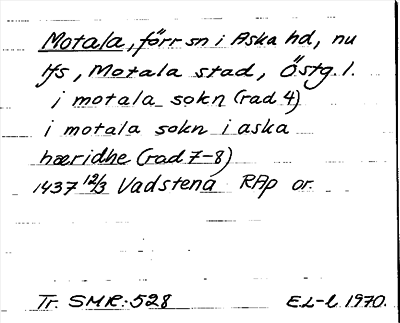 Motala, förr sn i Aska hd, nu
lfs, Motala stad, Östg. l.
i motala sokn (rad 4)
i motala sokn i aska
hæridhe (rad 7-8)
1437 12/3 Vadstena RAp or.
Tr. SMR: 528 E.L-l 1970.